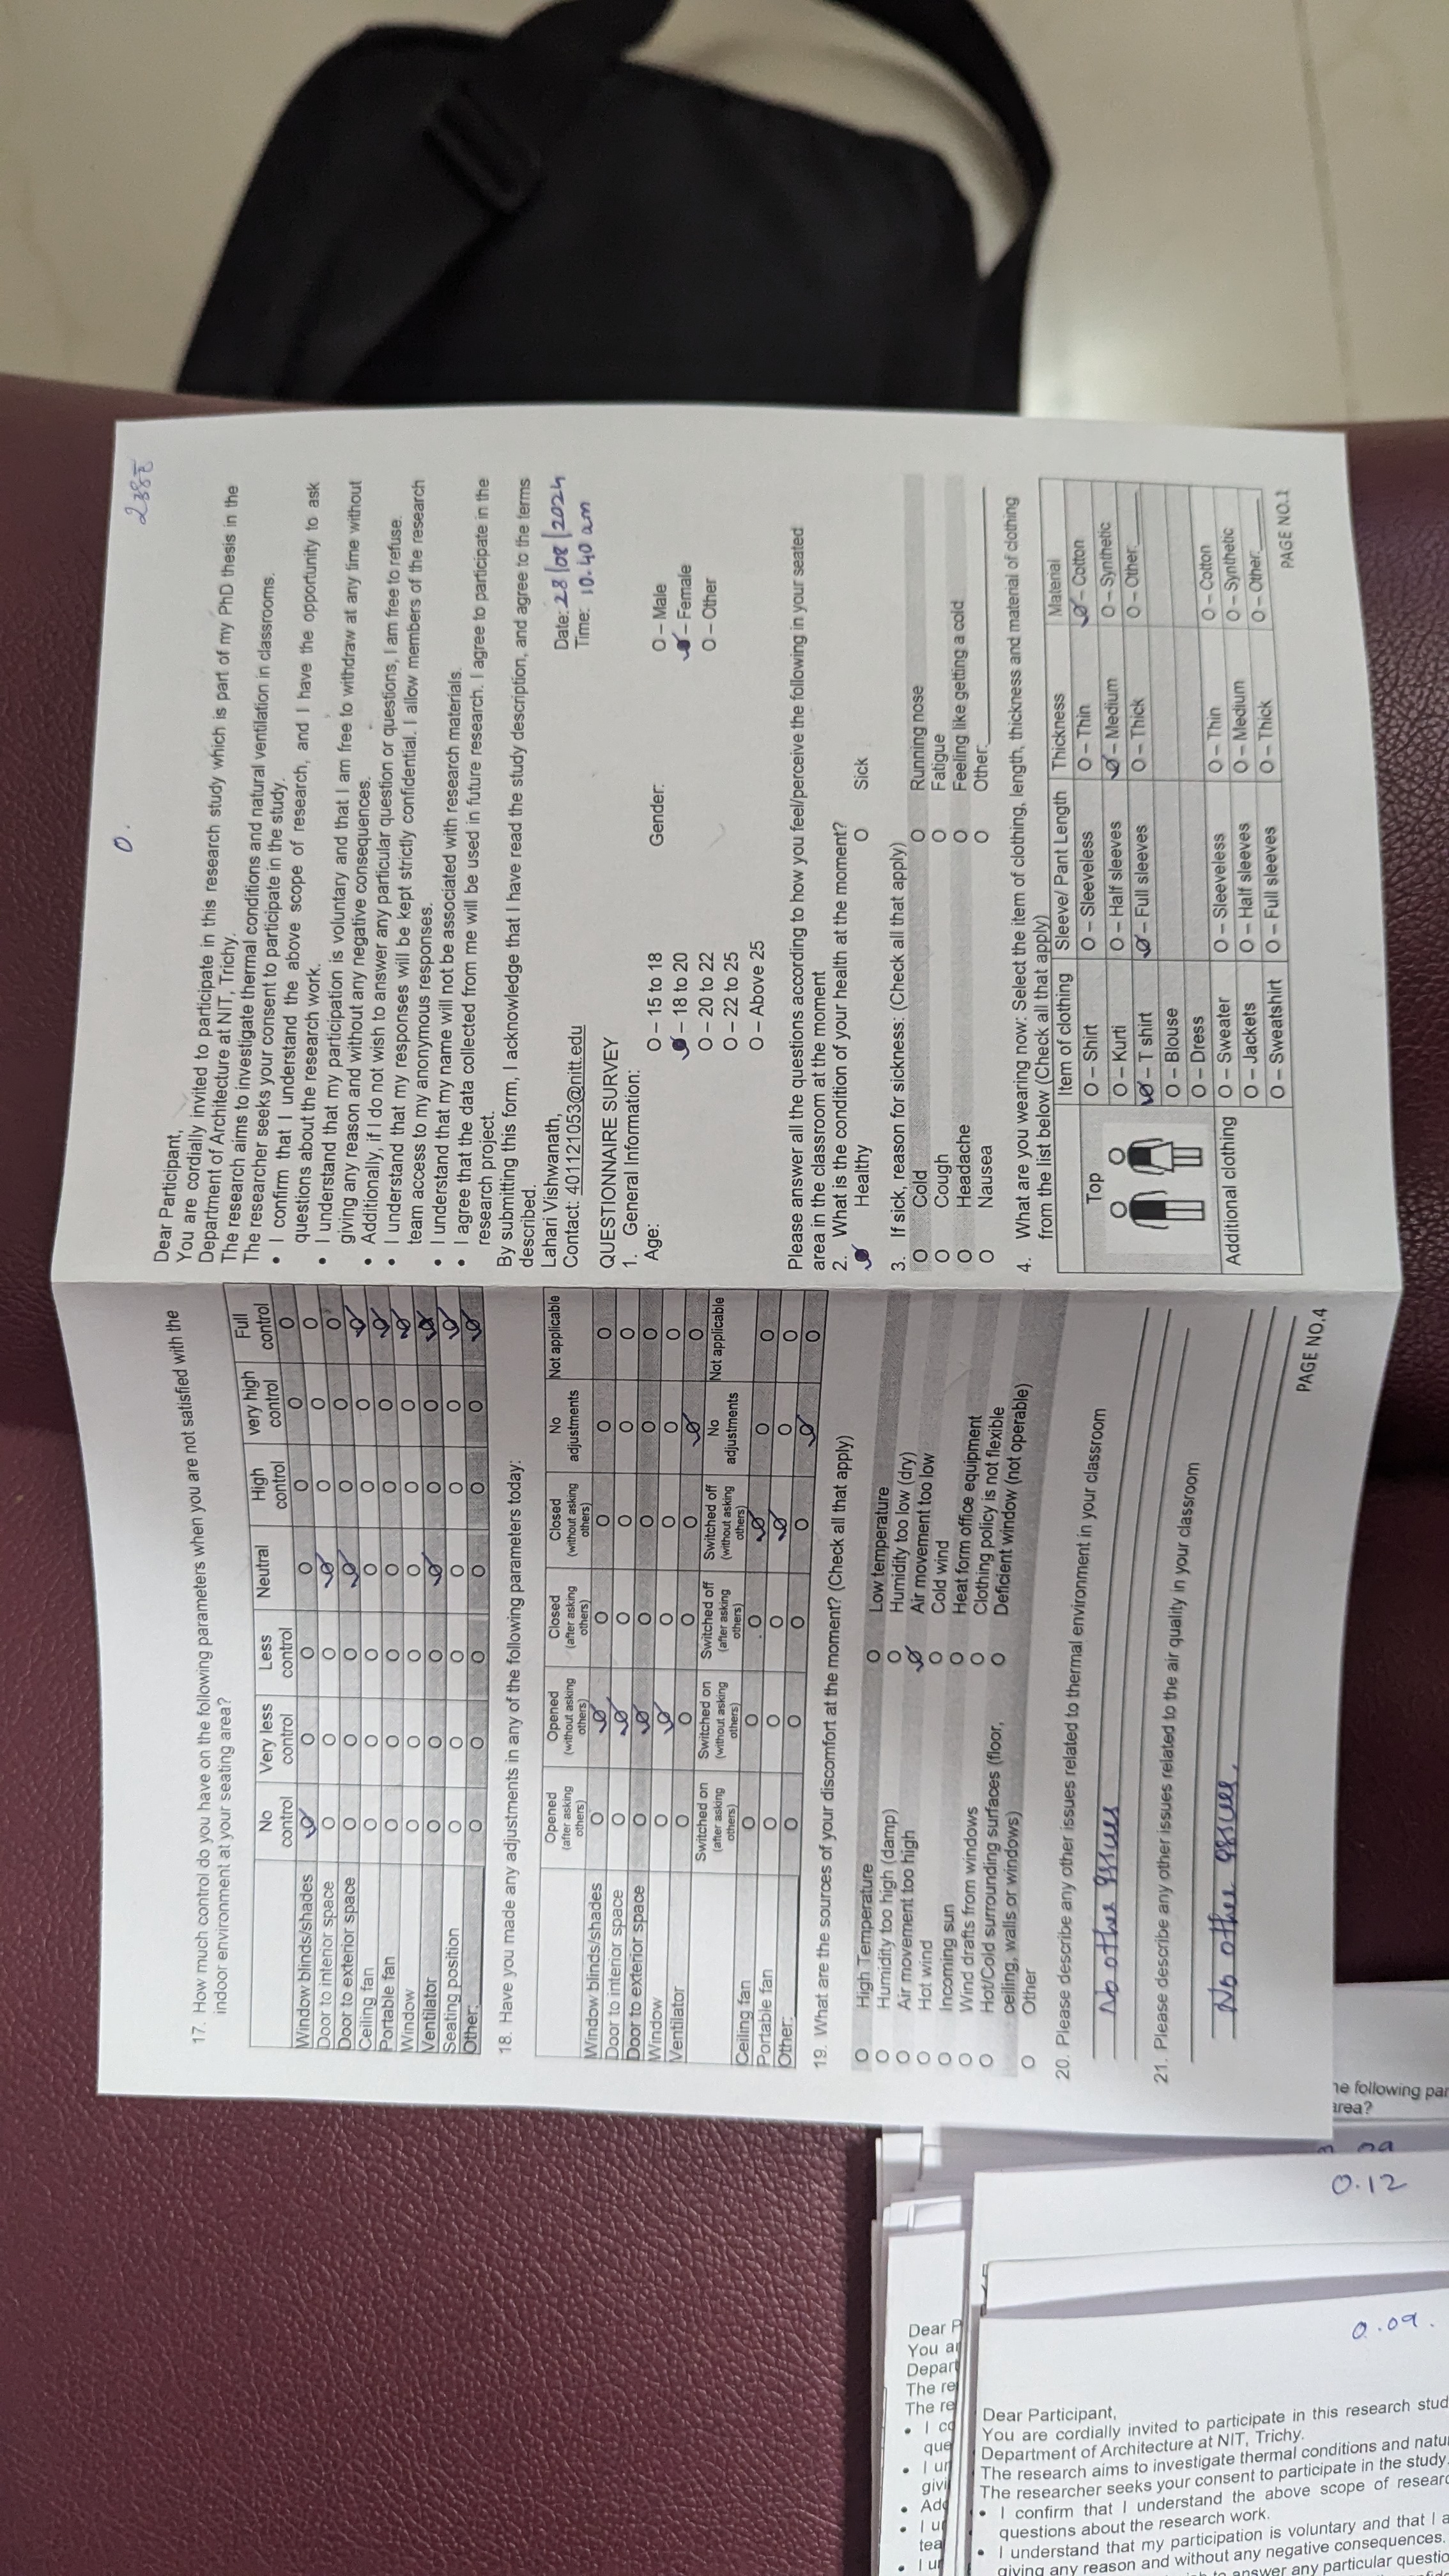 17. How much control do you have on the following parameters when you are not satisfied with the
indoor environment at your seating area?
No control Very less control Less control Neutral High control very high control Full control
Window blinds/shades O O O O O O
Door to interior space O O O O O O
Door to exterior space O O O O O O
Ceiling fan O O O O O O
Portable fan O O O O O O
Window O O O O O O
Ventilator O O O O O
Seating position O O O O O O
Other: O O O O O O
18. Have you made any adjustments in any of the following parameters today:
Opened (after asking others) Opened (without asking others) Closed (after asking others) Closed (without asking others) No adjustments Not applicable
Window blinds/shades O O O O O
Door to interior space O O O O O
Door to exterior space O O O O O
Window O O O O O
Ventilator O O O O O
Switched on (after asking others) Switched on (without asking others) Switched off (after asking others) Switched off (without asking others) No adjustments Not applicable
Ceiling fan O O O O O
Portable fan O O O O O
Other: O O O O O
19. What are the sources of your discomfort at the moment? (Check all that apply)
O High Temperature O Low temperature
O Humidity too high (damp) O Humidity too low (dry)
O Air movement too high Air movement too low
O Hot wind O Cold wind
O Incoming sun O Heat form office equipment
O Wind drafts from windows O Clothing policy is not flexible
O Hot/Cold surrounding surfaces (floor, O Deficient window (not operable)
ceiling, walls or windows)
O Other
20. Please describe any other issues related to thermal environment in your classroom
No other issues
21. Please describe any other issues related to the air quality in your classroom
No other issues.
PAGE NO.4
0.
Dear Participant,
You are cordially invited to participate in this research study which is part of my PhD thesis in the
Department of Architecture at NIT, Trichy.
The research aims to investigate thermal conditions and natural ventilation in classrooms.
The researcher seeks your consent to participate in the study.
• I confirm that I understand the above scope of research, and I have the opportunity to ask
questions about the research work.
• I understand that my participation is voluntary and that I am free to withdraw at any time without
giving any reason and without any negative consequences.
• Additionally, if I do not wish to answer any particular question or questions, I am free to refuse.
• I understand that my responses will be kept strictly confidential. I allow members of the research
team access to my anonymous responses.
• I understand that my name will not be associated with research materials.
• I agree that the data collected from me will be used in future research. I agree to participate in the
research project.
By submitting this form, I acknowledge that I have read the study description, and agree to the terms
described.
Lahari Vishwanath, Date: 28/08/2024
Contact: 401121053@nitt.edu Time: 10.40 am
QUESTIONNAIRE SURVEY
1. General Information:
Age: O – 15 to 18 Gender: O – Male
– 18 to 20 – Female
O – 20 to 22 O – Other
O – 22 to 25
O – Above 25
Please answer all the questions according to how you feel/perceive the following in your seated
area in the classroom at the moment
2. What is the condition of your health at the moment?
Healthy O Sick
3. If sick, reason for sickness: (Check all that apply)
O Cold O Running nose
O Cough O Fatigue
O Headache O Feeling like getting a cold
O Nausea O Other:
4. What are you wearing now: Select the item of clothing, length, thickness and material of clothing
from the list below (Check all that apply)
Item of clothing Sleeve/ Pant Length Thickness Material
Top O – Shirt O – Sleeveless O – Thin – Cotton
O – Kurti O – Half sleeves – Medium O – Synthetic
– T shirt – Full sleeves O – Thick O – Other:
O – Blouse
O – Dress
Additional clothing O – Sweater O – Sleeveless O – Thin O – Cotton
O – Jackets O – Half sleeves O – Medium O – Synthetic
O – Sweatshirt O – Full sleeves O – Thick O – Other:
PAGE NO.1
he following par
area?
0.12
Dear P
You ar
Depart
The re
The re
• I co
que
• I un
givi
• Add
tea
0.09.
Dear Participant,
You are cordially invited to participate in this research stud
Department of Architecture at NIT, Trichy.
The research aims to investigate thermal conditions and natu
The researcher seeks your consent to participate in the study.
• I confirm that I understand the above scope of researc
questions about the research work.
• I understand that my participation is voluntary and that I a
giving any reason and without any negative consequences.